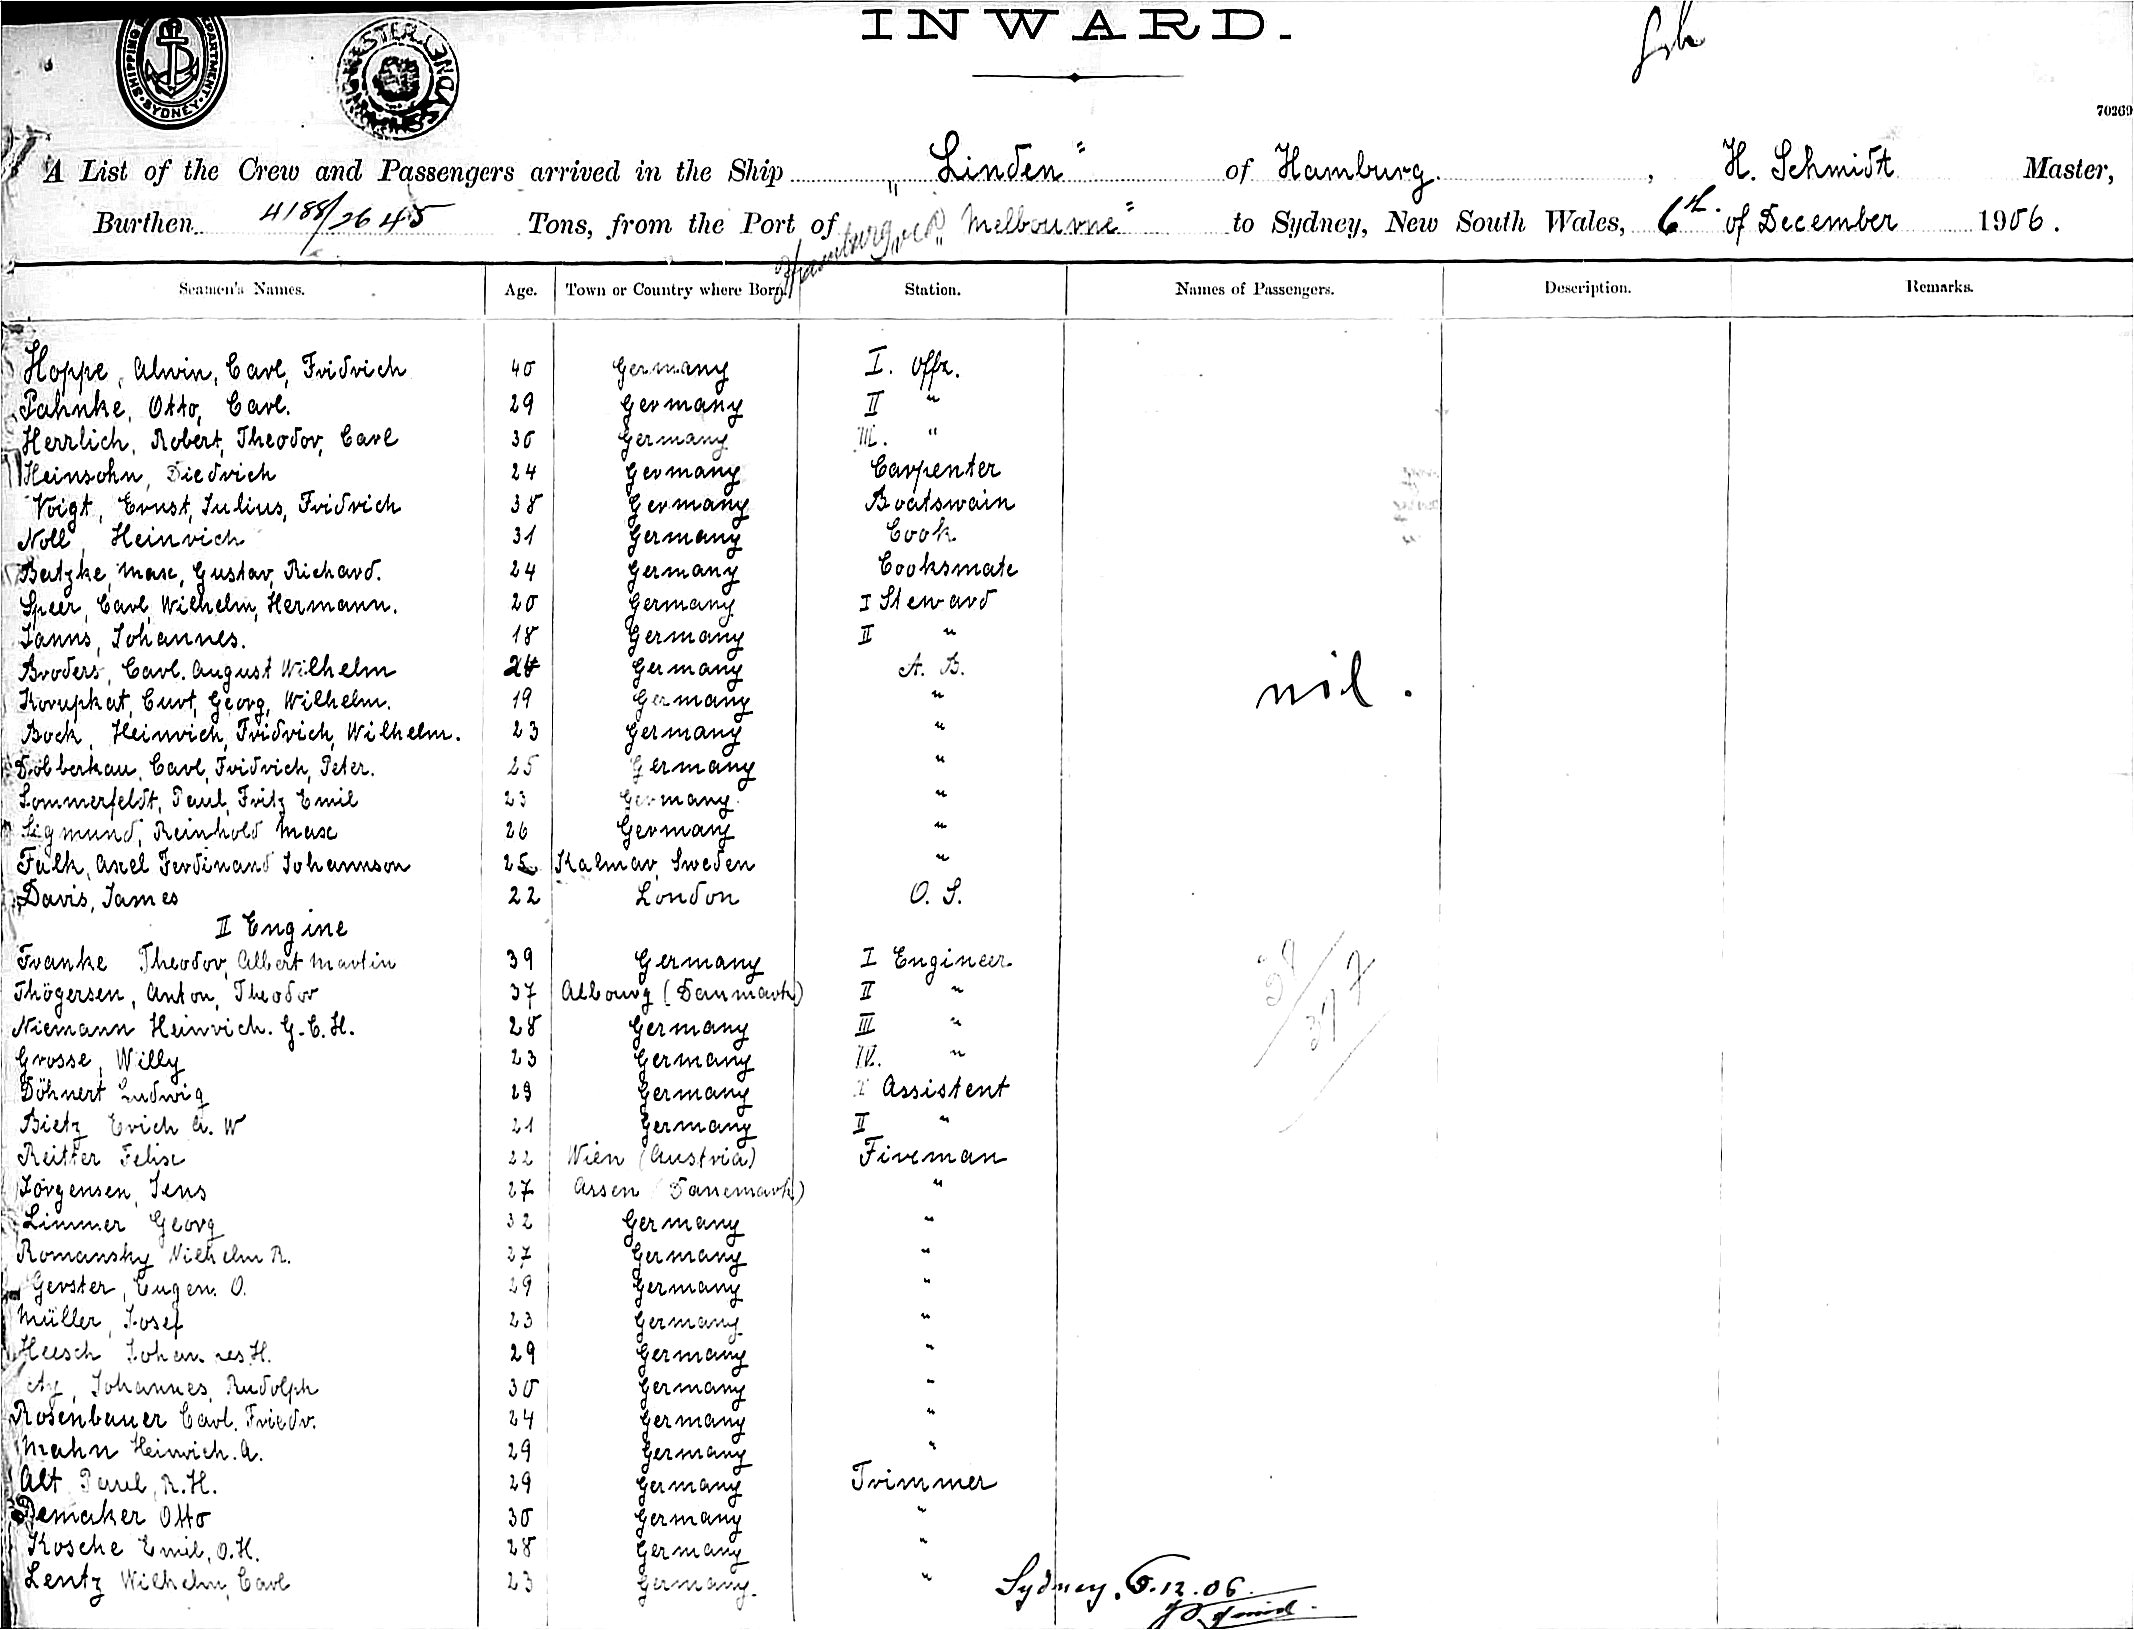 INWARD.
70269
SHIPPING DEPARTMENT SYDNEY
A List of the Crew and Passengers arrived in the Ship „Linden“ of Hamburg. , H. Schmidt Master,
Burthen 4188/2645 Tons, from the Port of Hamburg „Melbourne“ to Sydney, New South Wales, 6th. of December 1906.
Seamen's Names. Age. Town or Country where Born. Station. Names of Passengers. Description. Remarks.
Hoppe, Alwin, Carl, Fridrich 40 Germany I. Offz.
Pahnke, Otto, Carl. 29 Germany II "
Herrlich, Robert, Theodor, Carl 30 Germany III. "
Heinsohn, Diedrich 24 Germany Carpenter
Voigt, Ernst, Julius, Fridrich 38 Germany Boatswain
Noll, Heinrich 31 Germany Cook
Batzke, Max, Gustav, Richard. 24 Germany Cooksmate
Speer, Carl, Wilhelm, Hermann. 20 Germany I Steward
Janns, Johannes. 18 Germany II "
Broders, Carl. August Wilhelm Germany A. B.
nil.
Korupkat, Curt, Georg, Wilhelm. 19 Germany "
Bock, Heinrich, Fridrich, Wilhelm. 23 Germany "
Dobberkau, Carl, Fridrich, Peter. 25 Germany "
Sommerfeldt, Paul, Fritz Emil 23 Germany "
Sigmund, Reinhold Max 26 Germany "
Falk, Axel Ferdinand Johannson 25 Kalmar, Sweden "
Davis, James 22 London O. S.
II Engine
Franke Theodor, Albert Martin 39 Germany I Engineer
Thögersen, Anton, Theodor 37 Albourg (Danmark) II "
Niemann Heinrich. G. C. H. 28 Germany III "
Grosse, Willy 23 Germany IV. "
Döhnert Ludwig 29 Germany I Assistent
Bietz Erich A. W 21 Germany II "
Reitter Felix 22 Wien (Austria) Fireman
Jörgensen, Jens 27 Assen (Danemark) "
Limmer Georg 32 Germany "
Romansky Wilhelm R. 27 Germany "
Gerster, Eugen. O. 29 Germany "
Müller, Josef 23 Germany "
Heesch Johannes. H. 29 Germany "
Johannes, Rudolph 30 Germany "
Rosenbauer Carl. Friedr. 24 Germany "
Mahn Heinrich. A. 29 Germany "
Alt Paul, R. H. 29 Germany Trimmer
Demaker Otto 30 Germany "
Kosche Emil, O. H. 28 Germany "
Lentz Wilhelm, Carl 23 Germany. "
Sydney, 6.12.06.